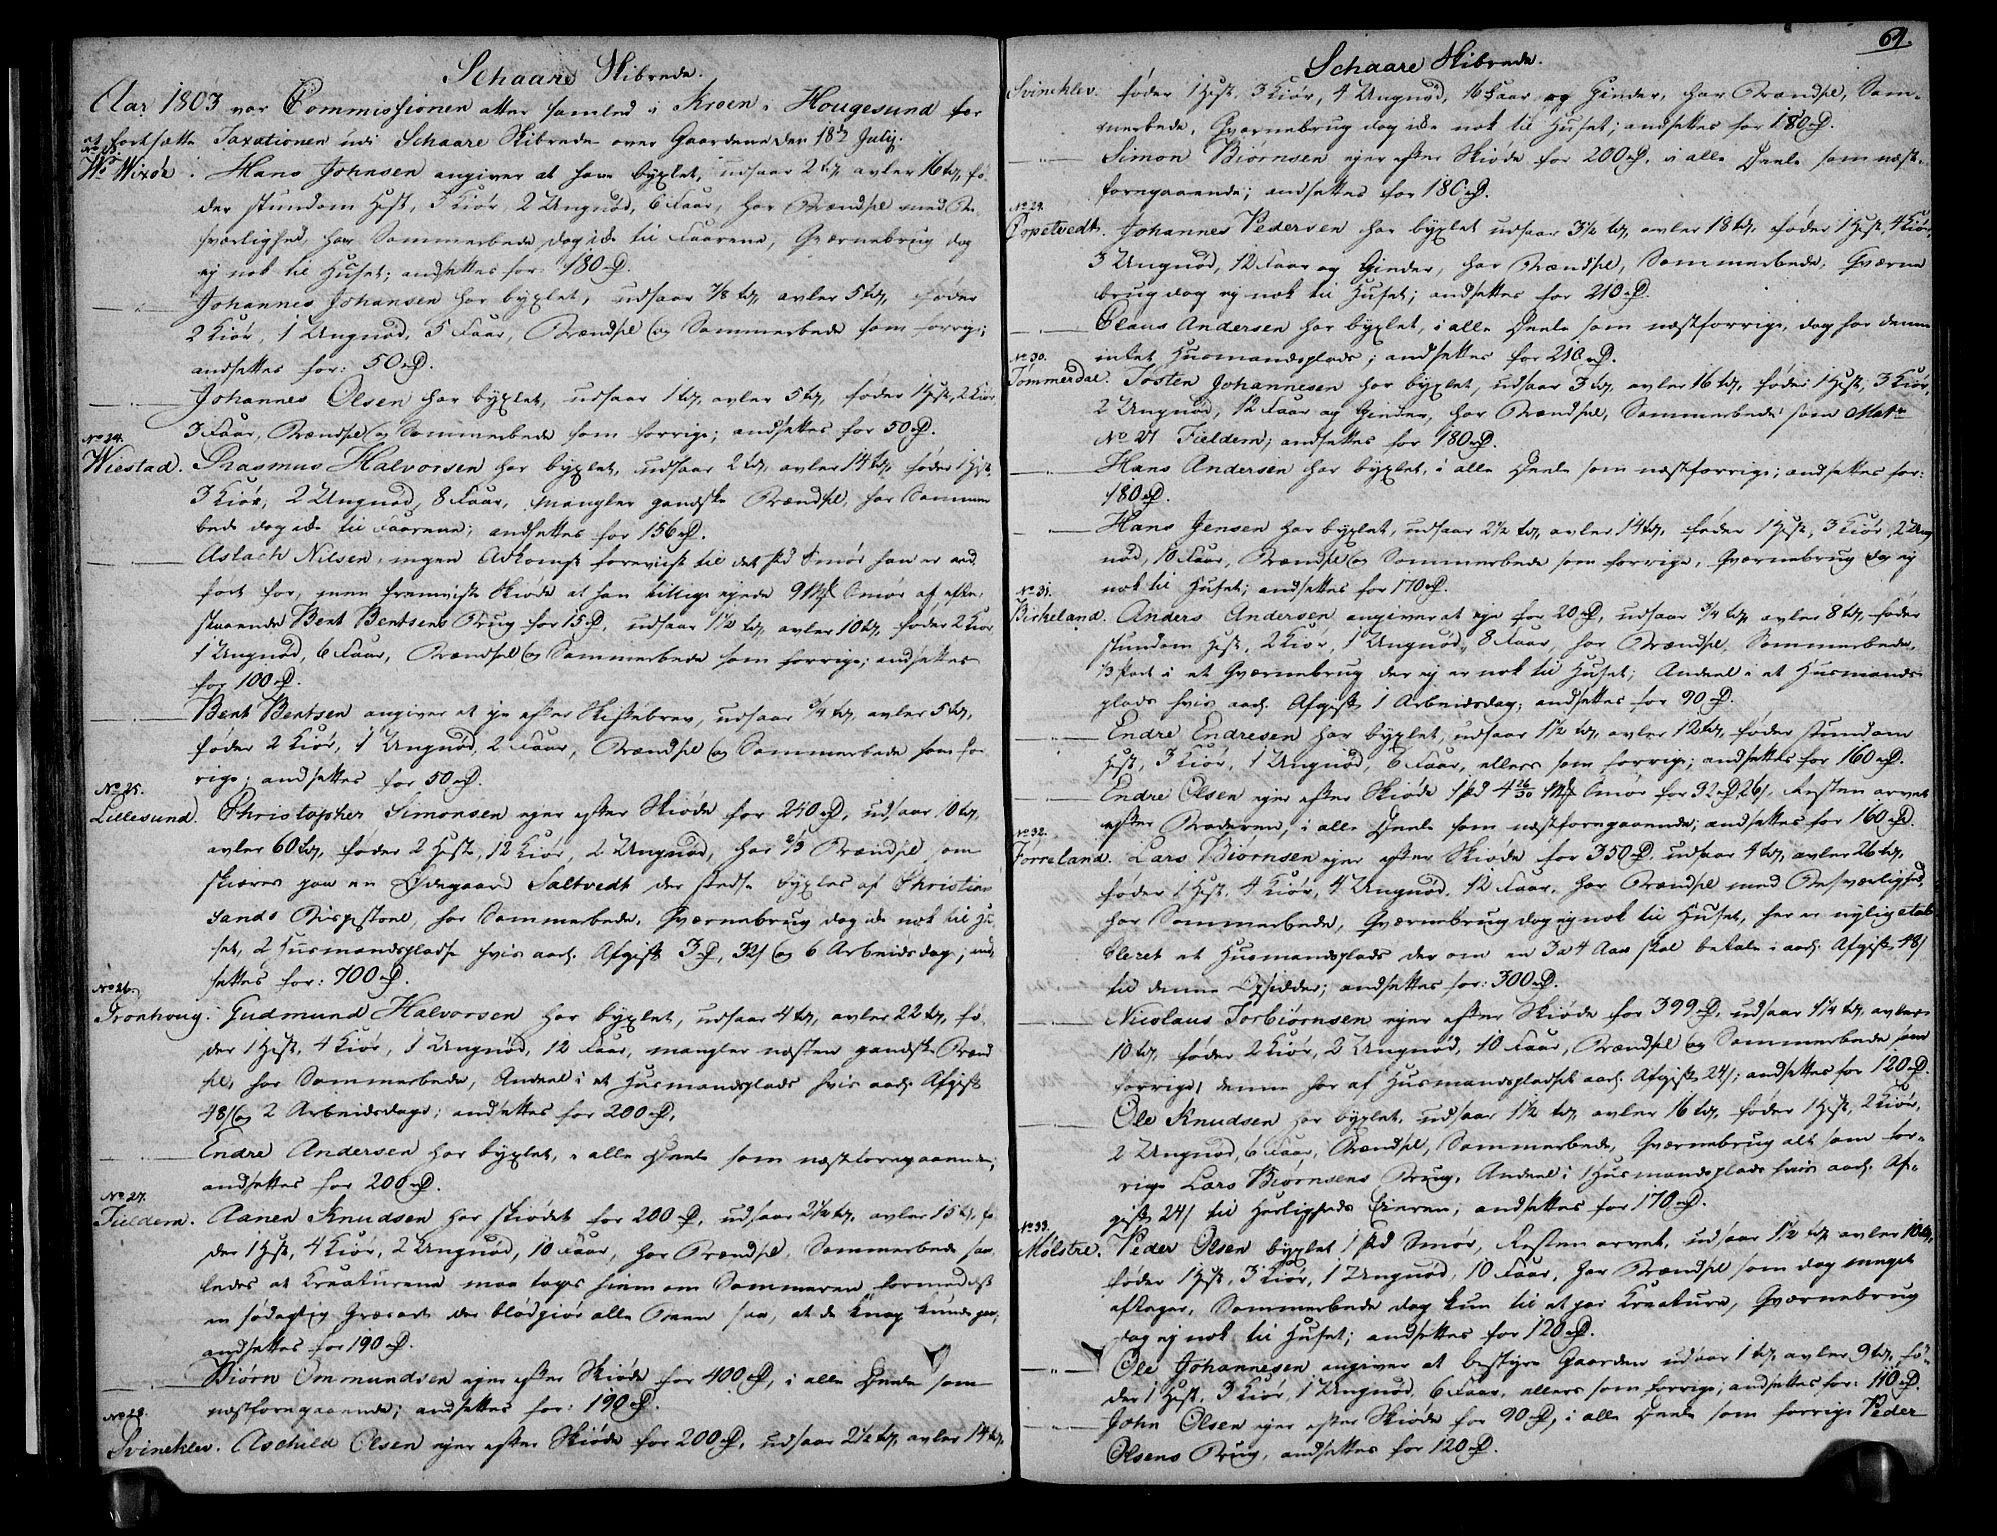 Schaare Skibrede.
Aar 1803 var Commissionen atter samled i Kroen i Hougesund for
at fortsætte Taxationen udi Schaare Skibrede over Gaardene den 18de July.
Wixøe. Hans Johnsen angiver at have byxlet, udsaar 2 tdr, avler 16 tdr, fø-
der stundom Hest, 3 Kiør, 2 Ungnød, 6 Faar, har Brændsel med Be-
sværlighed, har Sommerbede dog ikke til Faarene, Qværnebrug dog
ej nok til Huset; andsættes for: 180 rD.
Johannes Johansen har byxlet, udsaar 7/8 tdr, avler 5 tdr, føder
2 Kiør, 1 Ungnød, 5 Faar, Brændsel og Sommerbede som forrige;
andsættes for: 50 rD.
Johannes Olsen har byxlet, udsaar 1 tdr, avler 5 tdr, føder 1 Hest, 2 Kiør
3 Faar, Brændsel og Sommerbede som forrige; andsættes for 50 rD.
No 24.
Wiestad. Rasmus Halvorsen har byxlet, udsaar 2 tdr, avler 14 tdr, føder 1 Hest,
3 Kiør, 2 Ungnød, 8 Faar, mangler gandske Brændsel, har Sommer
bede dog ikke til Faarene; andsættes for 156 rD.
Aslach Nilsen, ingen Adkomst foreviist til det pd Smør han er and
ført for, men fremviiste Skiøde at han tillige ejede 9 Mrk Smør af efter
staaende Bent Bentsens Brug for 15 rD, udsaar 1 1/2 tdr, avler 10 tdr, føder 2 Kiør
1 Ungnød, 6 Faar, Brændsel og Sommerbede som forrige; andsættes
for 100 rD.
Bent Bentsen angiver at eje efter Skiftebrev, udsaar 3/4 tdr, avler 5 tdr,
føder 2 Kiør, 1 Ungnød, 2 Faar, Brændsel og Sommerbede som for
rige; andsættes for 50 rD.
No 25.
Lillesund. Christopher Simonsen ejer efter Skiøde for 240 rD, udsaar 10 tdr,
avler 60 tdr, føder 2 Heste, 12 Kiør, 2 Ungnød, har 2/3 Brændsel, om
skiæres paa en Ødegaard Saltvedt der stedse byxles af Christian
sands Bispestoel, har Sommerbede, Qværnebrug dog ikke nok til Hu
set, 2 Husmandspladse hvis aarl. Afgift 3 rD, 32 s og 6 Arbeidsdage, and
sættes for: 700 rD.
No 26.
Tronhoug. Gudmund Halvorsen har byxlet, udsaar 4 tdr, avler 22 tdr, fø
der 1 Hest, 4 Kiør, 1 Ungnød, 12 Faar, mangler næsten gandske Brænd
sel, har Sommerbede, Andeel i et Husmandsplads hvis aarl. Afgift
48 s og 2 Arbeidsdage; andsættes for 200 rD,
Endre Andersen har byxlet, i alle Deele som næstforegaaende;
andsættes for 200 rD.
No 27.
Fieldem. Aanen Knudsen har skiødet for 200 rD, udsaar 2 1/2 tdr, avler 15 tdr, fø
der 1 Hest, 4 Kiør, 2 Ungnød, 10 Faar, har Brændsel, Sommerbede saa
ledes at Kreaturene maa tages hiem om Sommeren formedelst
en Græsart der blødgiør alle Been saa, at de knap kunde gaae,
andsættes for 190 rD.
Biørn Ommundsen ejer efter Skiøde for 400 rD, i alle Deele som
næstforegaaende; andsættes for: 190 rD.
No 28.
Svinehlev. Aschild Olsen ejer efter Skiøde for 200 rD, udsaar 2 1/2 tdr, avler 14 tdr,
64.
Schaare Skibrede.
Svinehlev. føder 1 Hest, 3 Kiør, 4 Ungnød, 16 Faar og Gieder, har Brændsel, Som-
merbede, Qværnebrug dog ikke nok til Huset; andsættes for 180 rD.
Simon Biørnsen ejer efter Skiøde for 200 rD, i alle Deele som næst-
foregaaende; andsættes for 180 rD.
No 29.
Johannes Pedersen har byxlet udsaar 3 1/2 tdr, avler 18 tdr, føder 1 Hest, 4 Kiør,
3 Ungnød, 12 Faar og Gieder, har Brændsel, Sommerbede, Qværne
brug dog ej nok til Huset; andsættes for 210 rD.
Claus Andersen har byxlet, i alle Deele som næstforrige, dog har denne
intet Husmandsplads; andsættes for 210 rD.
No 30.
Tømmerdal. Tosten Johannesen har byxlet, udsaar 3 tdr, avler 16 tdr, føder 1 Hest, 3 Kiør,
2 Ungnød, 12 Faar og Gieder, har Brændsel, Sommerbede som Matr
No 27 Fieldem; andsættes for 180 rD.
Hans Andersen har byxlet, i alle Deele som næstforrige; andsættes for:
180 rD.
Hans Jensen har byxlet, udsaar 2 1/2 tdr, avler 14 tdr, føder 1 Hest, 3 Kiør, 2 Ung
nød, 10 Faar, Brændsel og Sommerbede som forrige, Qværnebrug dog ej
nok til Huset; andsættes for 170 rD.
No 31.
Birkeland. Anders Andersen angiver at eje for 20 rD, udsaar 3/4 tdr, avler 8 tdr, føder
stundom Hest, 2 Kiør, 1 Ungnød, 8 Faar, har Brændsel, Sommerbede,
1/3 Part i et Qværnebrug der ej er nok til Huset; Andeel i et Husmands
plads hvis aarl. Afgift 1 Arbeidsdag; andsættes for 90 rD.
Endre Endresen har byxlet, udsaar 1 1/2 tdr, avler 12 tdr, føder stundom
Hest, 3 Kiør, 1 Ungnød, 6 Faar, ellers som forrige; andsættes for 160 rD.
Endre Olsen ejer efter Skiøde 1 pd 4 26/30 Mrk Smør for 32 rD 26 s, Resten arvet
efter Broderen, i alle Deele som næstforegaaende; andsættes for 160 rD.
No 32.
Førreland. Lars Biørnsen ejer efter Skiøde for 350 rD, udsaar 4 tdr, avler 26 tdr,
føder 1 Hest, 4 Kiør, 4 Ungnød, 12 Faar, har Brændsel med Besværlighed,
har Sommerbede, Qværnebrug dog ej nok til Huset, her er nylig etab
leret et Husmandsplads der om en 3 a 4 Aar skal betale i aarl. Afgift 48 s
til denne Opsidder; andsættes for: 300 rD.
Nicolaus Torbiørnsen ejer efter Skiøde for 399 rD, udsaar 1 1/4 tdr, avler
10 tdr, føder 2 Kiør, 2 Ungnød, 10 Faar, Brændsel og Sommerbede som
forrige, denne har af Husmandspladset aarl. Afgift 24 s; andsættes for 120 rD.
Ole Knudsen har byxlet, udsaar 1 1/2 tdr, avler 16 tdr, føder 1 Hest, 2 Kiør,
2 Ungnød, 6 Faar, Brændsel, Sommerbede, Qværnebrug alt som for-
rige Lars Biørnsens Brug, Andeel i 1 Husmandsplads hvis aarl. Af-
gift 24 s til Herligheds Eieren; andsættes for 170 rD.
No 33.
Mølstre. Peder Olsen byxlet 1 pd Smør, Resten arvet, udsaar 1 1/2 tdr, avler 10 tdr,
føder 1 Hest, 3 Kiør, 1 Ungnød, 10 Faar, har Brændsel som dog meget
aftager, Sommerbede dog kun til et par Kreature, Qværnebrug
dog ej nok til Huset; andsættes for 120 rD.
Ole Johannesen angiver at bestyre Gaarden udsaar 1 tdr, avler 9 tdr, fø-
der 1 Hest, 3 Kiør, 1 Ungnød, 6 Faar, ellers som forrige; andsættes for: 110 rD.
John Olsen ejer efter Skiøde for 90 rD, i alle Deele som forrige Peder
Olsens Brug, andsættes for 120 rD.